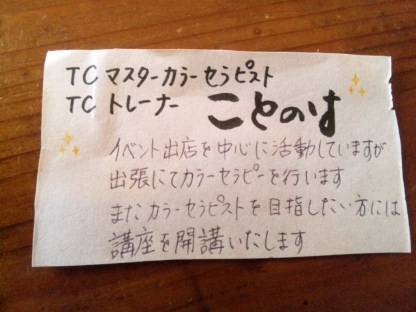 TCマスターカラーセラピスト
TCトレーナー ことのは
イベント出店を中心に活動していますが
出張にてカラーセラピーを行います
またカラーセラピストを目指したい方には
講座を開講いたします